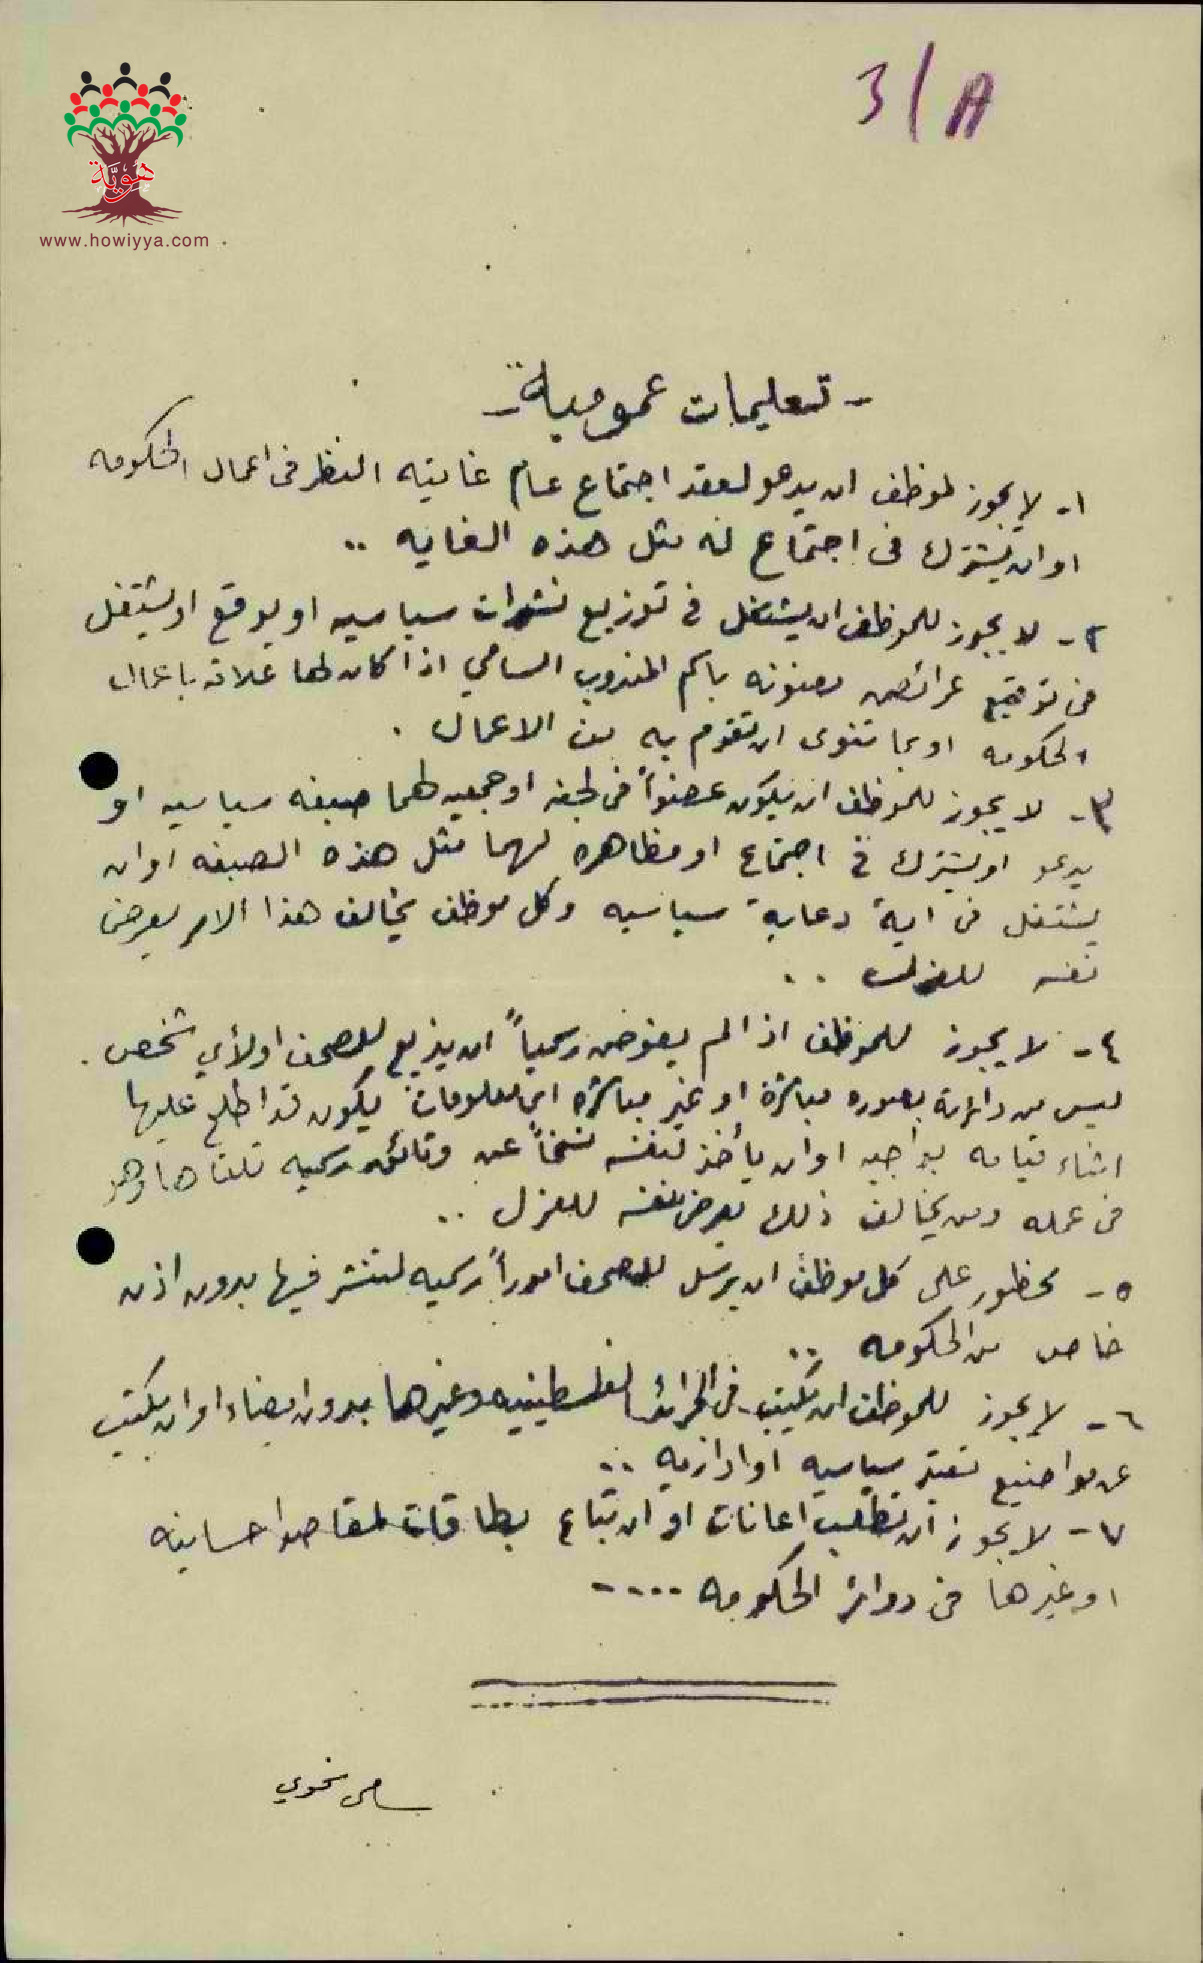 3/A
هوية
www.howiyya.com
- تعليمات عمومية -
١- لا يجوز لموظف ان يدعو لعقد اجتماع عام غايته النظر في اعمال الحكومه
او ان يشترك في اجتماع له مثل هذه الغايه ..
٢- لا يجوز للموظف ان يشتغل في توزيع نشرات سياسيه او يوقع او يشتغل
في توقيع عرائض معنونه باسم المندوب السامي اذا كان لها علاقه باعمال
الحكومه او بما تنوى ان تقوم به من الاعمال .
٣- لا يجوز للموظف ان يكون عضواً في لجنه او جمعيه لهما صبغه سياسيه او
يدعو او يشترك في اجتماع او مظاهره لهما مثل هذه الصبغه او ان
يشتغل في اية دعاية سياسيه وكل موظف يخالف هذا الامر يعرض
نفسه للعزل ..
٤- لا يجوز للموظف اذا لم يفوض رسمياً ان يذيع للصحف او لأي شخص .
ليس من دائرته بصوره مباشرة او غير مباشره اي معلومات يكون قد اطلع عليها
اثناء قيامه بواجبه او ان يأخذ لنفسه نسخاً عن وثائق رسميه تلقاها وهو
في عمله ومن يخالف ذلك يعرض نفسه للعزل ..
٥- محظور على كل موظف ان يرسل للصحف اموراً رسميه لتنشر فيها بدون اذن
خاص من الحكومه ..
٦- لا يجوز للموظف ان يكتب في الجرائد الفلسطينيه وغيرها بدون امضاء او ان يكتب
عن مواضيع تعتبر سياسيه او اداريه ..
٧- لا يجوز ان تطلب اعانات او ان تباع بطاقات لمقاصد احسانيه
او غيرها في دوائر الحكومه ....
سامي نحوي